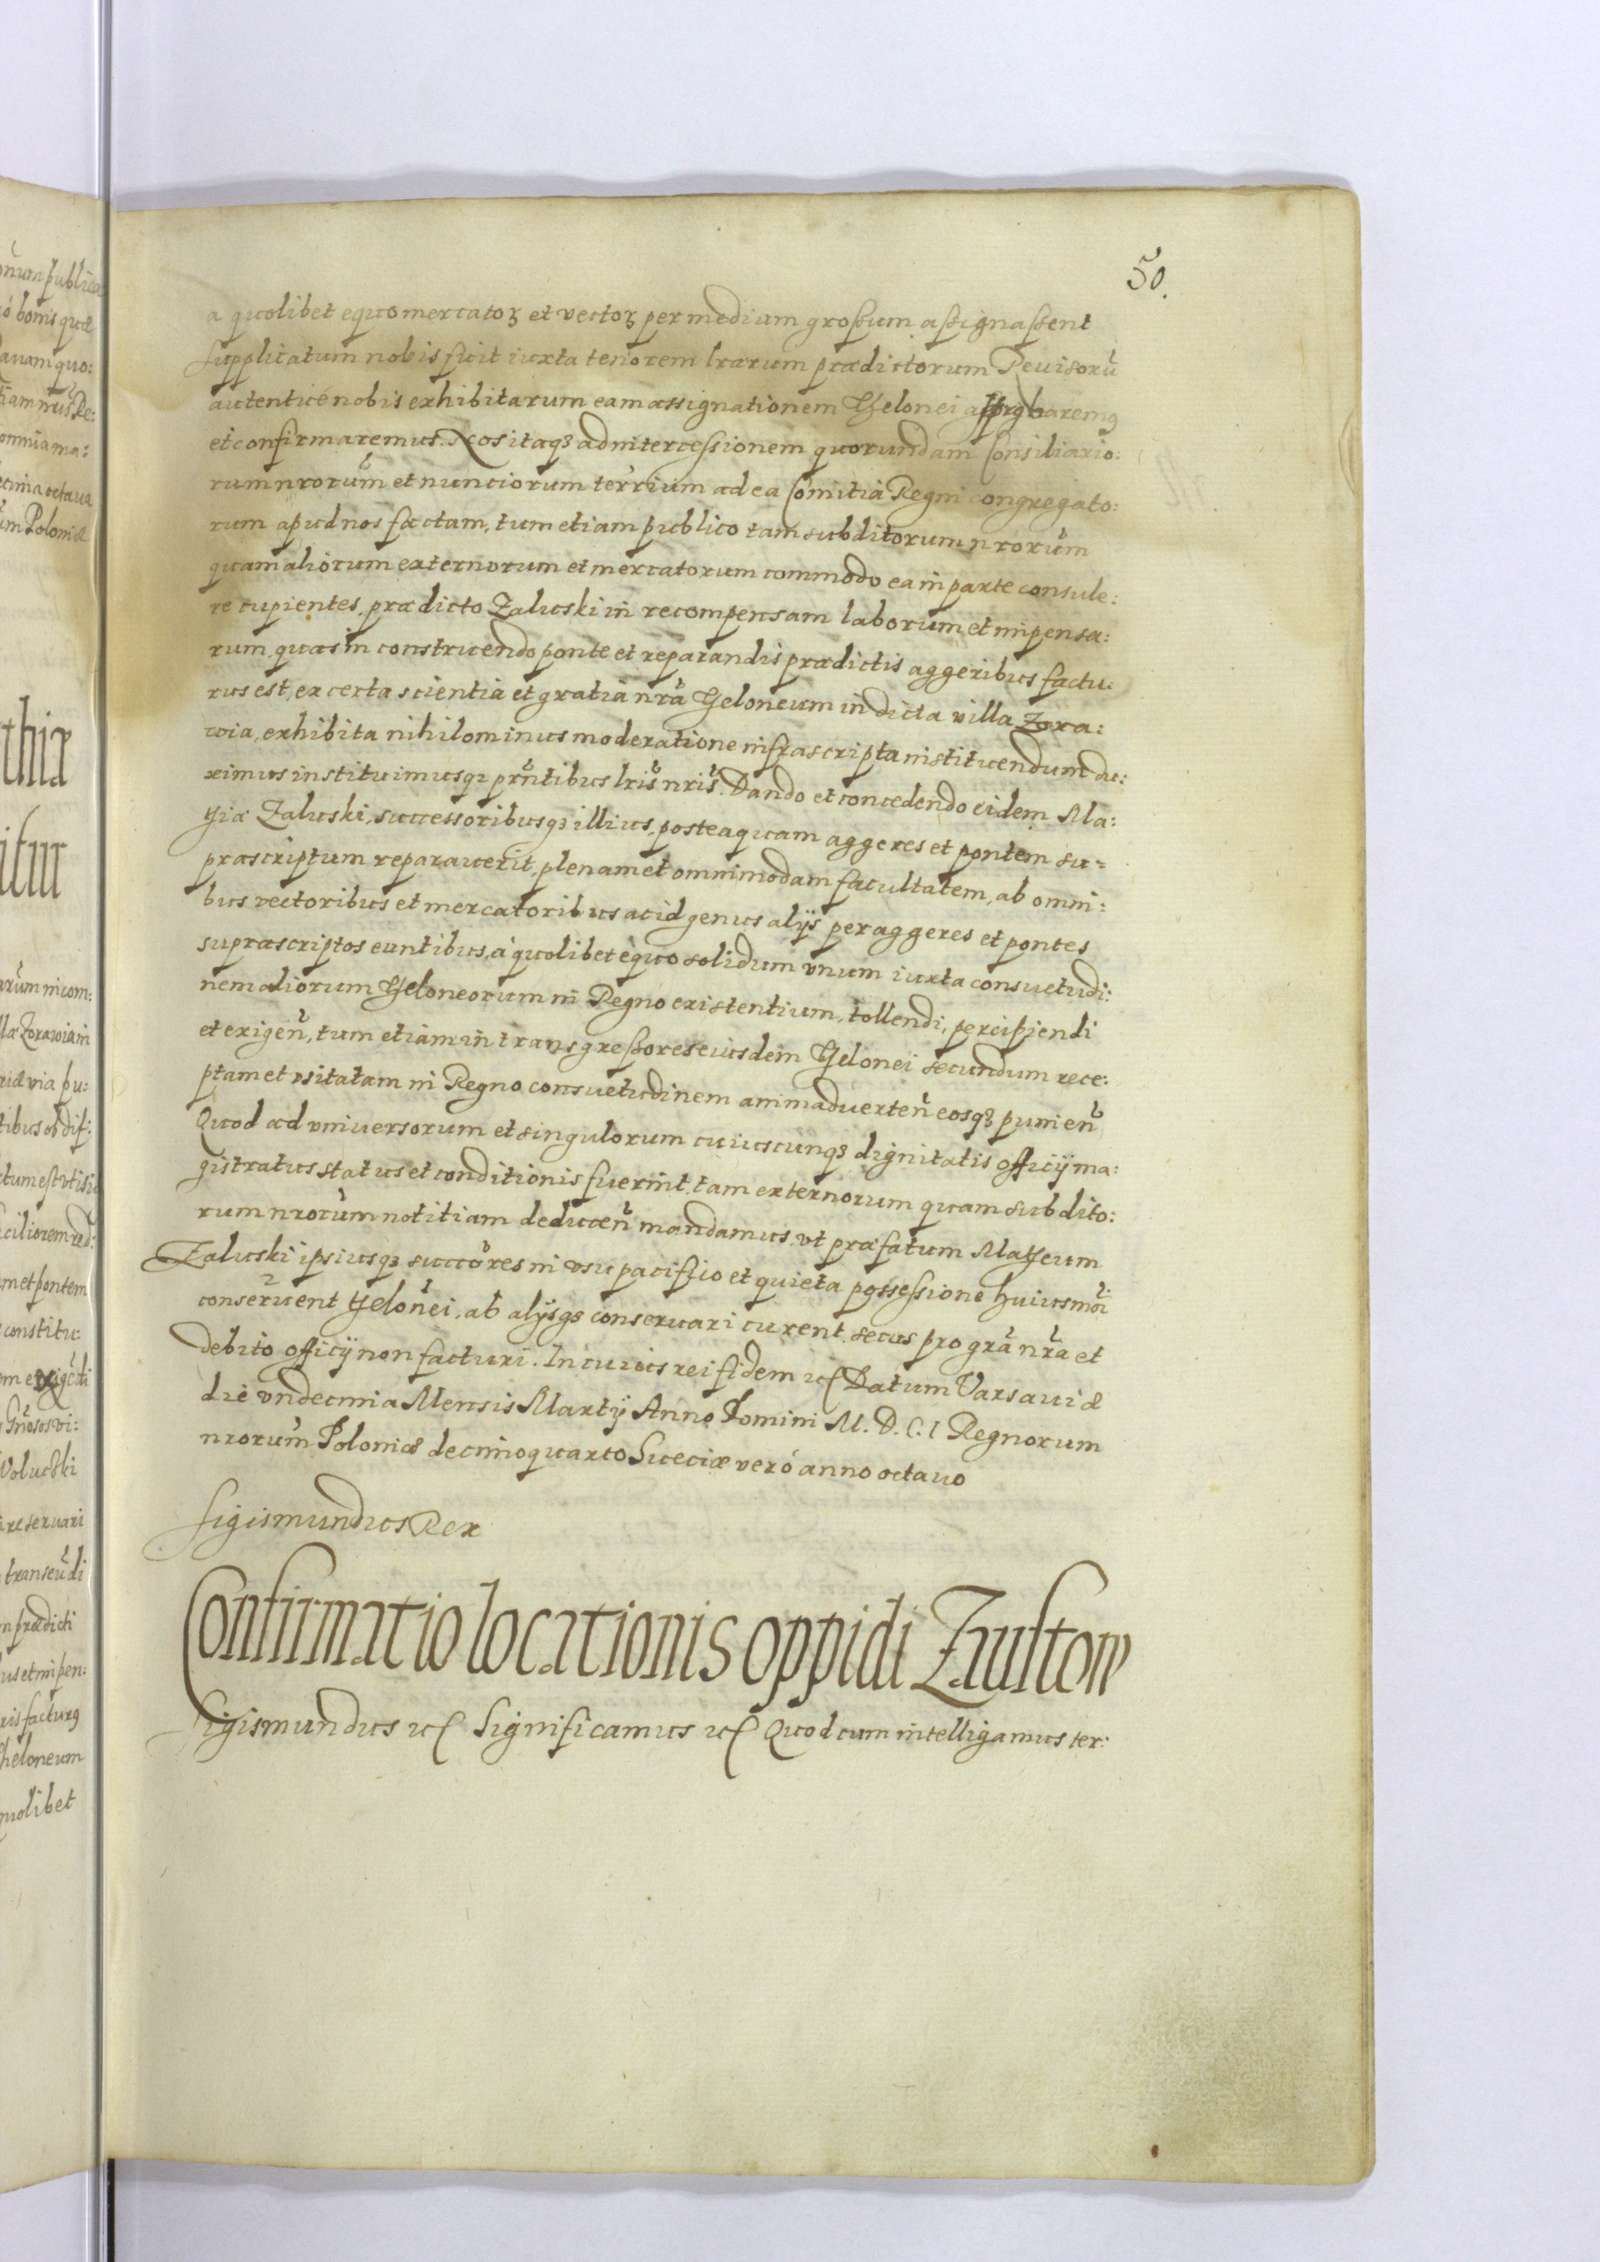 50.
a quolibet equo mercatoꝝ et vectoꝝ per medium großum aßignaßent
supplicatum nobis fuit iuxta tenorem lrarum prædictorum Reuisorũ
autenticé nobis exhibitarum eam assignationem Thelonei approbaremꝰ
et confirmaremus. Nos itaqꝫ ad intercessionem quorundam Consiliario:
rum nrorum et nunciorum terrium ad ea Comitia Regni congregato:
rum apud nos factam, tum etiam publico tam subditorum nrorum
quam aliorum externorum et mercatorum commodo ea in parte consule:
re cupientes, prædicto Zaluski in recompensam laborum et impensa:
rum, quas in construendo ponte et reparandis prædictis aggeribus factu:
rus est, ex certa scientia et gratia nra Theloneum in dicta villa Zora:
wia, exhibita nihilominus moderatione infrascripta instituendum du:
ximus instituimusqꝫ prntibus lris nris. Dando et concedendo eidem Ma:
thiæ Zaluski, successoribusqꝫ illius, posteaquam aggeres et pontem su=
præscriptum reparauerit, plenam et omnimodam facultatem, ab omni:
bus vectoribus et mercatoribus ac id genus alijs per aggeres et pontes
supræscriptos euntibus, a quolibet equo solidum vnum iuxta consuetudi:
nem aliorum Theloneorum in Regno existentium, tollendi, percipiendi
et exigen, tum etiam in transgreßores eiusdem Thelonei secundum rece:
ptam et vsitatam in Regno consuetudinem animaduerten eosqꝫ punien
Quod ad vniuersorum et singulorum cuiuscunqꝫ dignitatis officij ma:
gistratus status et conditionis fuerint, tam externorum quam subdito:
rum nrorum notitiam deducen mandamus, vt præfatum Matheum
Zaluski ipsiusqꝫ succores in vsu pacifico et quieta possessione huiusmoi
conseruent Thelonei, ab alijsqꝫ conseruari curent, secus pro gra nra et
debito officij non facturi. In cuius rei fidem etc Datum Varsauiæ
die vndecima Mensis Martij Anno Domini M. D. C. I Regnorum
nrorum Poloniæ decimoquarto Sueciæ veró anno octauo
Sigismundus Rex
Confirmatio locationis oppidi Zaustow
Sigismundus etc Significamus etc Quod cum intelligamus ter: